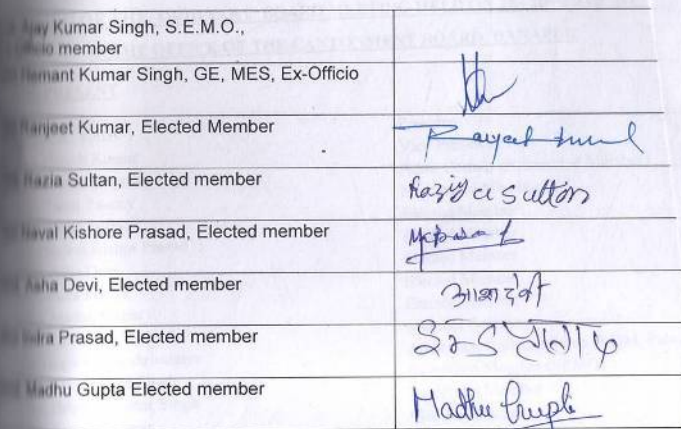 Ajay Kumar Singh, S.E.M.O.,
Officio member
Hemant Kumar Singh, GE, MES, Ex-Officio
Ranjeet Kumar, Elected Member
Razia Sultan, Elected member
Razia Sultan
Naval Kishore Prasad, Elected member
Asha Devi, Elected member
आशा देवी
Indra Prasad, Elected member
Madhu Gupta Elected member
Madhu Gupta